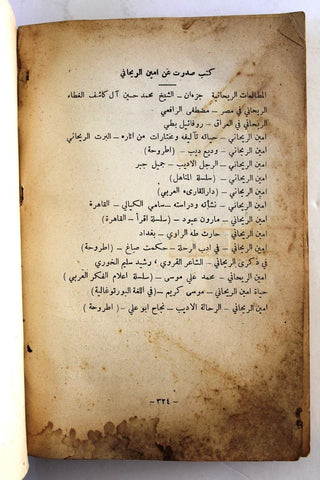 كتب صدرت عن امين الريحاني
المطالعات الريحانية جزءان – الشيخ محمد حسين آل كاشف الغطاء
الريحاني في مصر – مصطفى الرافعي
الريحاني في العراق – روفائيل بطي
امين الريحاني – حياته تآليفه ومختارات من آثاره – البرت الريحاني
امين الريحاني – وديع ديب – (اطروحة)
امين الريحاني – الرجل الاديب – جميل جبر
امين الريحاني – (سلسلة المناهل)
امين الريحاني – (دار القارىء العربي)
امين الريحاني – نشأته ودراسته – سامي الكيالي – القاهرة
امين الريحاني – مارون عبود – (سلسلة اقرأ – القاهرة)
امين الريحاني – حارث طه الراوي – بغداد
امين الريحاني – في ادب الرحلة – حكمت صباغ – (اطروحة)
في ذكرى الريحاني – الشاعر القروي ، رشيد سليم الخوري
امين الريحاني – محمد علي موسى – (سلسلة اعلام الفكر العربي)
حياة امين الريحاني – موسى كريم – (في اللغة البورتوغالية)
امين الريحاني – الرحالة الاديب – نجاح ابو علي – (اطروحة)
– ٣٢٤ –